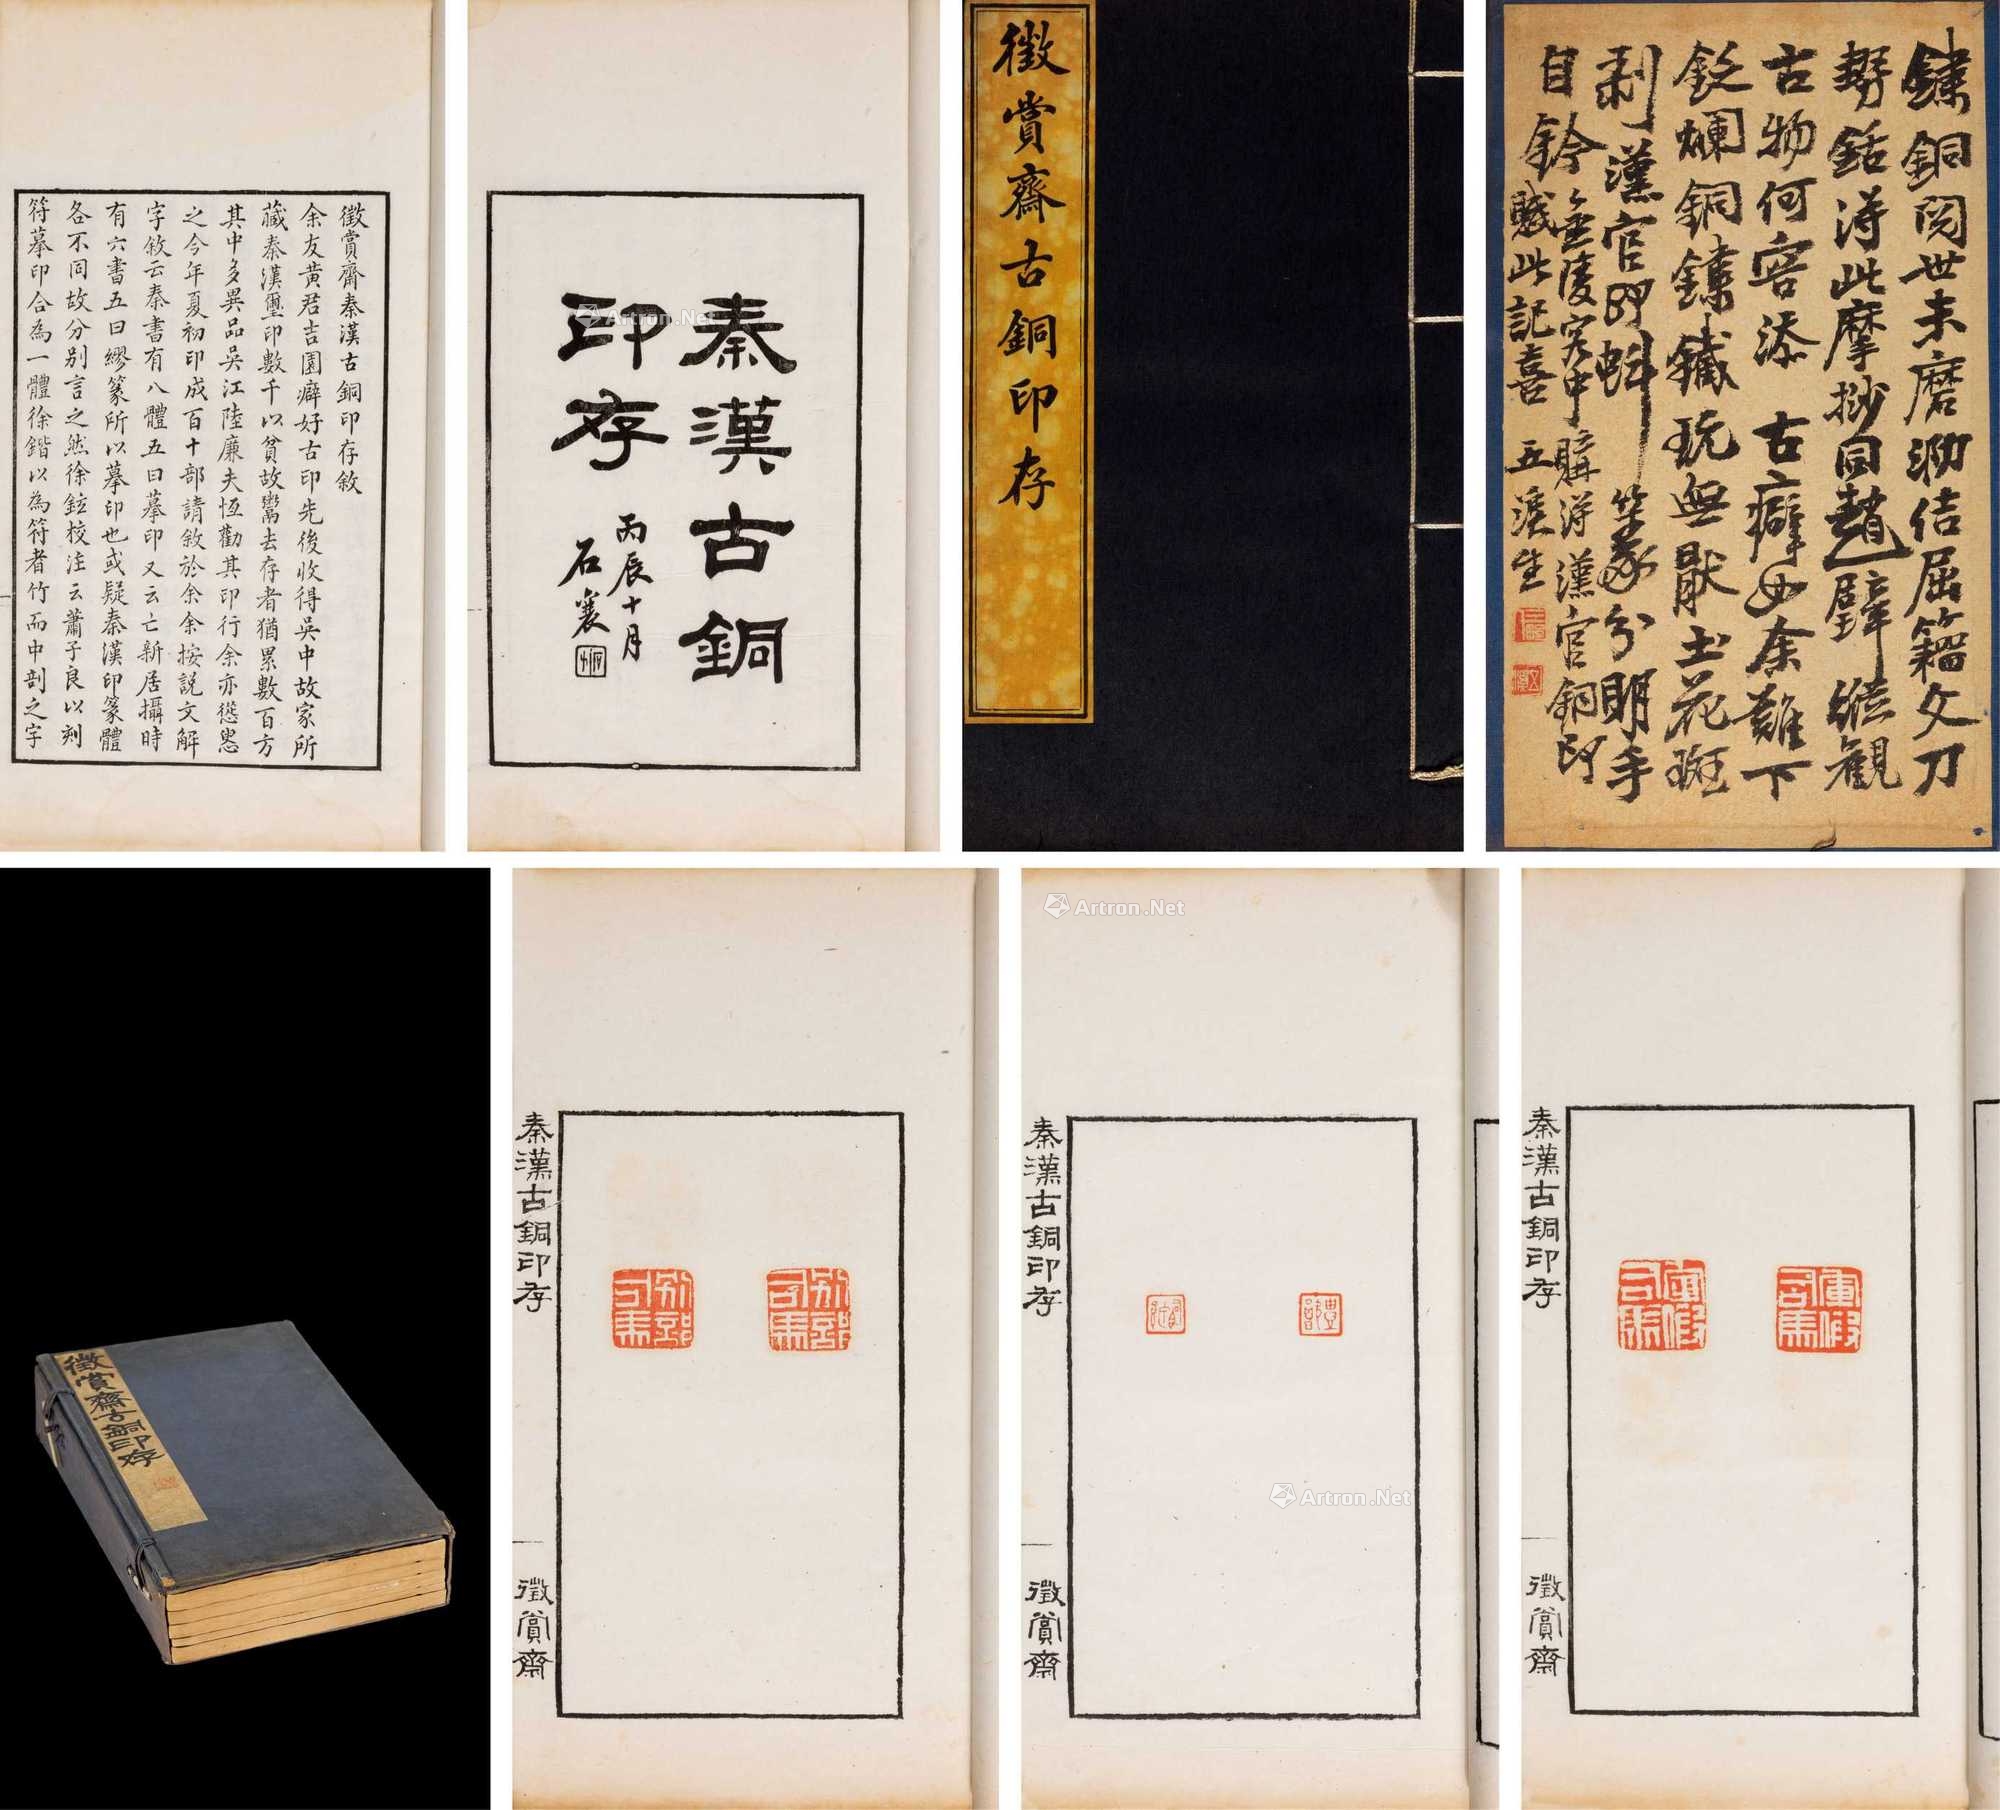 徵賞齋秦漢古銅印存敘
余友黃君吉園癖好古印先後收得吳中故家所
藏秦漢璽印數千以貧故鬻去存者猶累數百方
其中多異品吳江陸廉夫恆勸其印行余亦慫恿
之今年夏初印成百十部請敘於余余按說文解
字敘云秦書有八體五曰摹印又云亡新居攝時
有六書五曰繆篆所以摹印也或疑秦漢印篆體
各不同故分別言之然徐鉉校注云蕭子良以刻
符摹印合為一體徐鍇以為符者竹而中剖之字
秦漢古銅
印存
丙辰十月
石襄
Artron.Net
徵賞齋古銅印存
鏽銅閱世未磨泐佶屈籀文刀
古物何容添古癖
釵爛銅鏽鐵玩無猒土花斑
剥漢官印斟
分明手
自鈐
金陵客中購得漢官銅印
賦此記喜 五溪生
徵賞齋古銅印存
秦漢古銅印存
徵賞齋
別部司馬
別部司馬
Artron.Net
秦漢古銅印存
徵賞齋
Artron.Net
秦漢古銅印存
徵賞齋
軍假司馬
軍假司馬